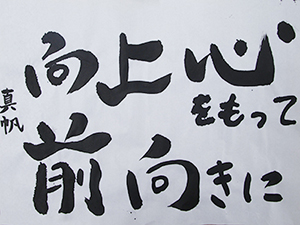 向上心
をもって
前向きに
真帆